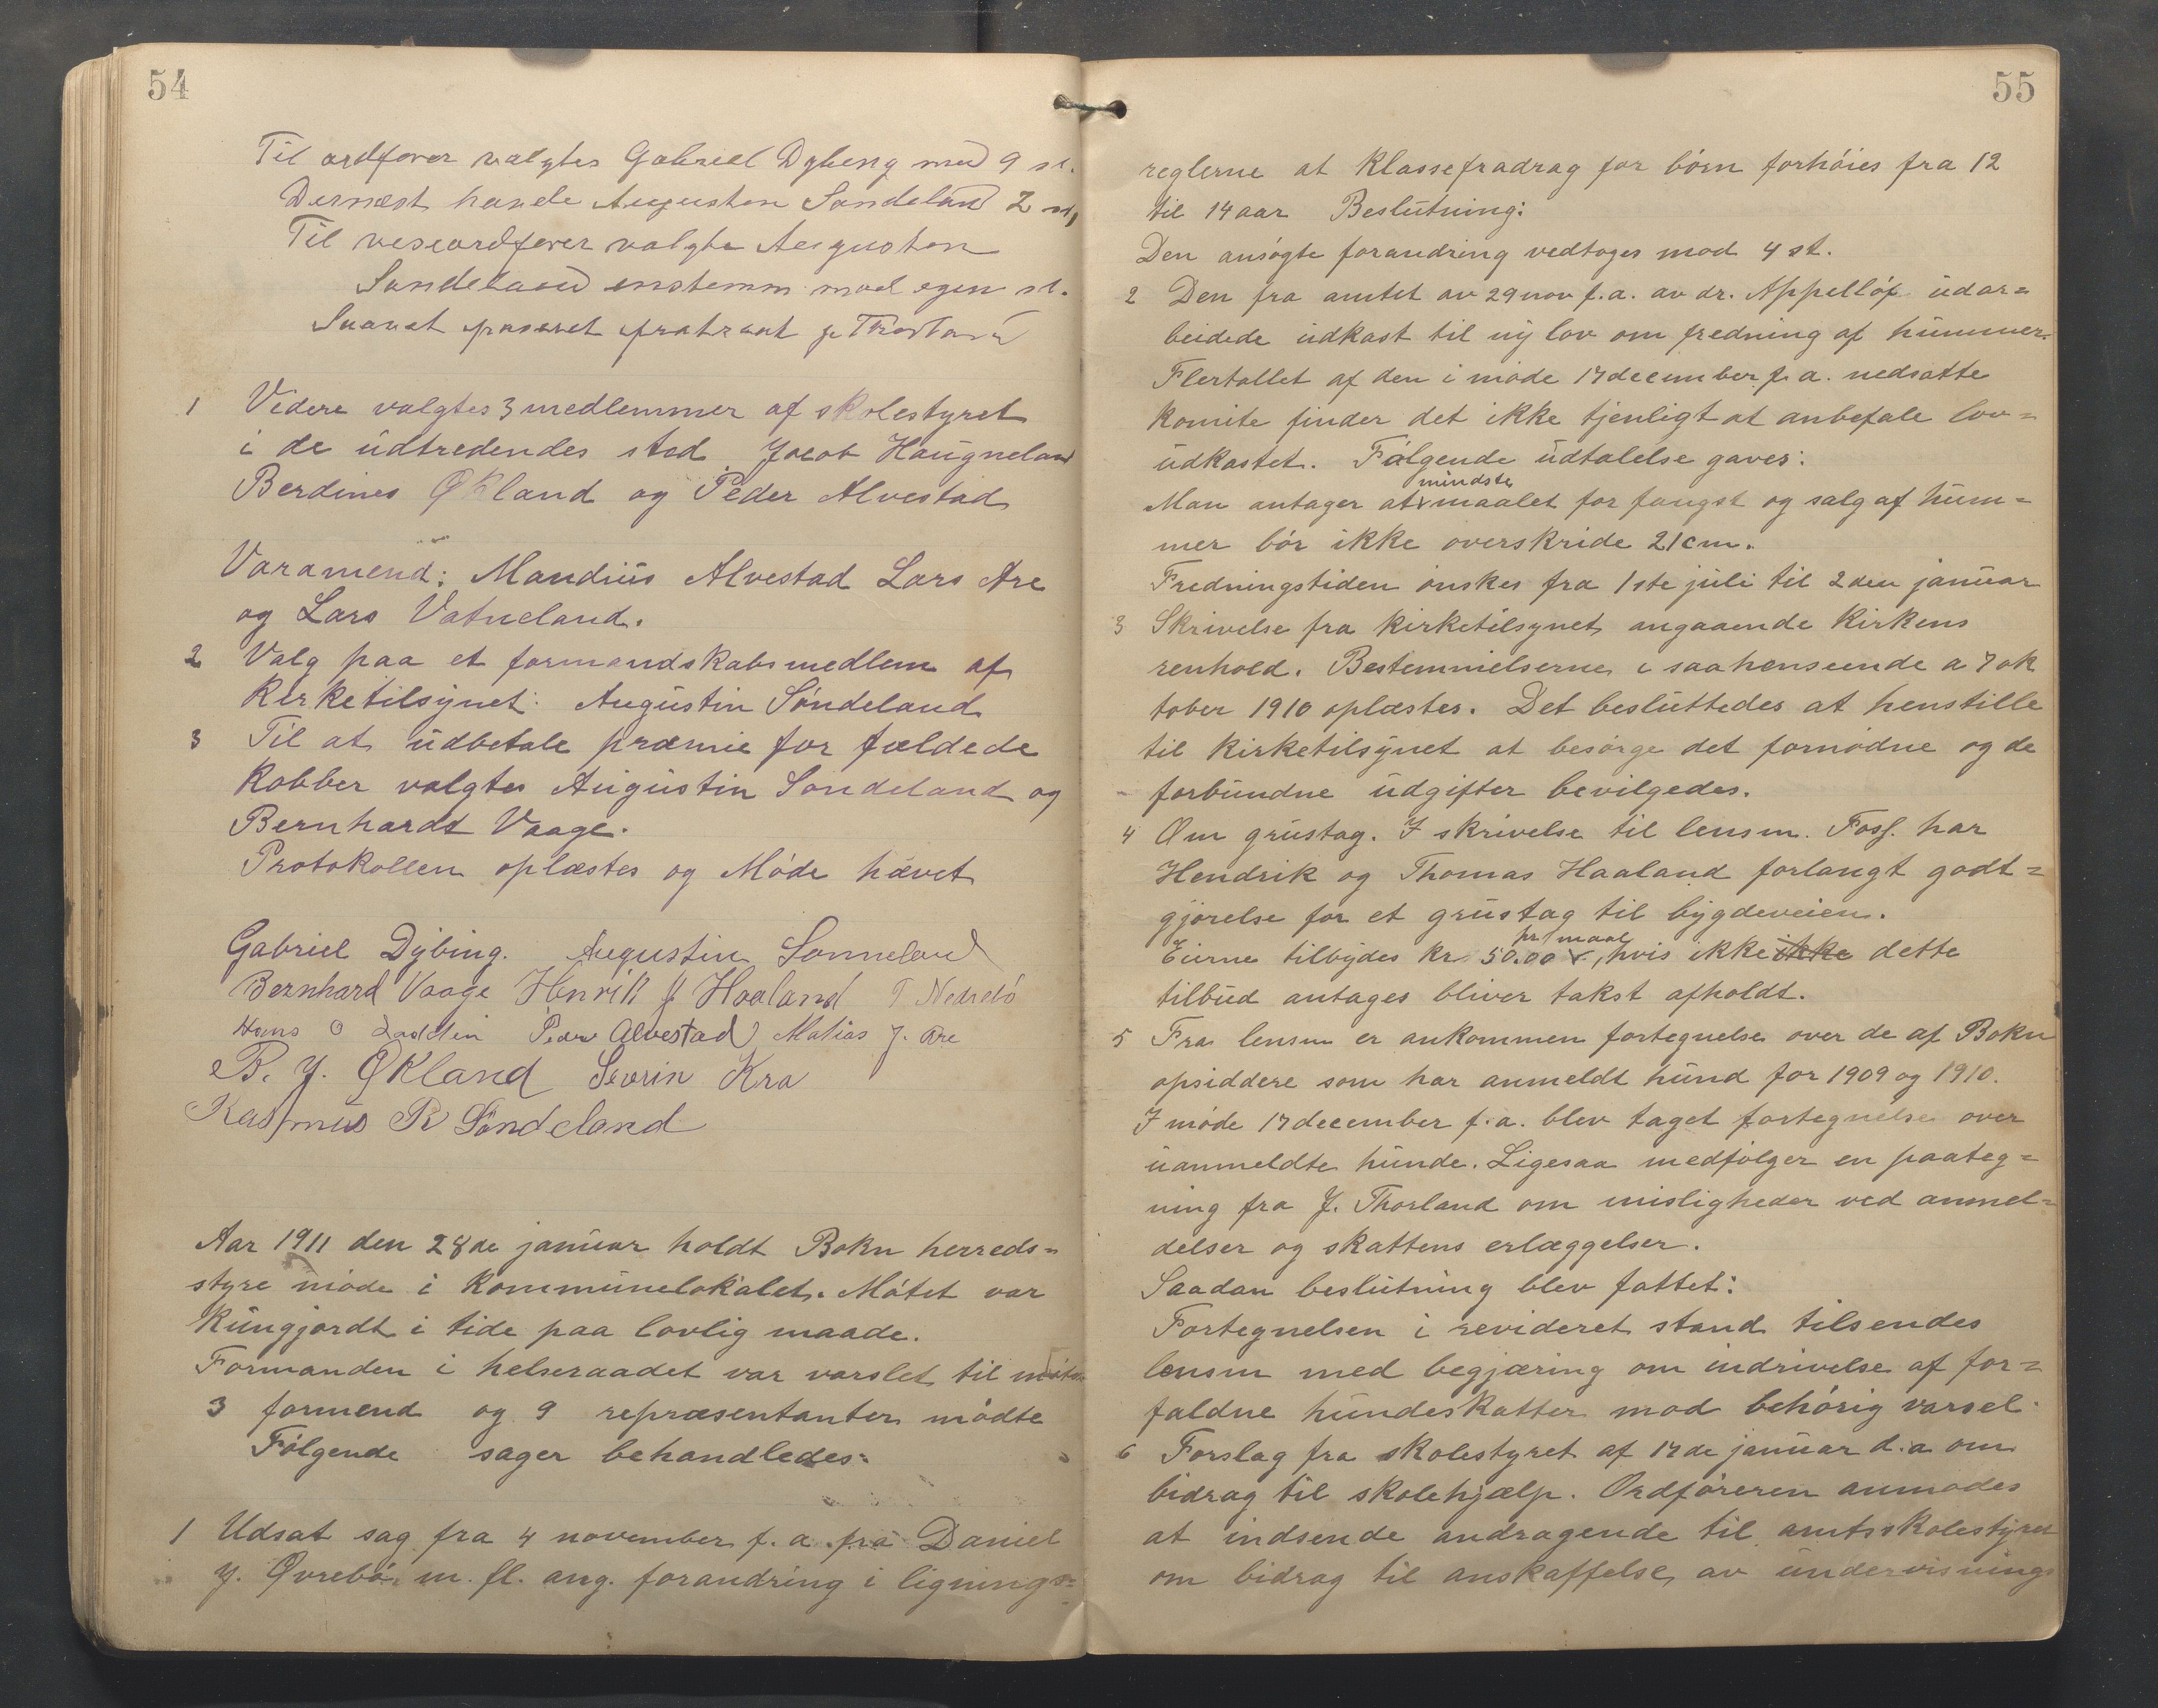 54
Til ordfører valgtes Gabriel Dybing med 9 st.
Dernæst havde Augusten Søndeland 2 st,
Til viseordfører valgte Augusten
Søndeland enstemm mod egen st.
1 Videre valgtes 3 medlemmer af skolestyret
i de udtredendes sted Jacob Haugneland
Berdines Økland og Peder Alvestad
Varamend: Mandius Alvestad Lars Are
og Lars Vatneland.
2 Valg paa et formandskabsmedlem af
Kirketilsynet: Augustin Søndeland
3 Til at udbetale præmie for fældede
Kobber valgtes Augustin Søndeland og
Bernhardt Vaage.
Protokollen oplæstes og Møde hævet
Gabriel Dybing. Augustin Sønneland
Bernhard Vaage Henrik J Haaland T Nedrebø
Hans O Peder Alvestad Matias J. Are
B. J. Økland Severin Kro
Rasmus R Søndeland
Aar 1911 den 28de januar holdt Bokn herreds=
styre møde i Kommunelokalet. Møtet var
Kungjordt i tide paa lovlig maade.
Formanden i helseraadet var varslet til møtet
3 formend og 9 repræsentanter mødte
Følgende sager behandledes:
1 Udsat sag fra 4 november f. a. fra Daniel
J. Øvrebø m. fl. ang. forandring i lignings=
55
reglerne at Klassefradrag for børn forhøies fra 12
til 14 aar Beslutning:
Den ansøgte forandring vedtoges mod 4 st.
2 Den fra amtet av 29 nov f.a. av dr. Appelløf udar=
beidede udkast til ny lov om fredning af hummer.
Flertallet af den i møde 17 december f. a. nedsatte
Komite finder det ikke tjenligt at anbefale lov=
udkastet. Følgende udtalelse gaves:
mindste
Man antager at maalet for fangst og salg af hum=
mer bør ikke overskride 21 cm.
Fredningstiden ønskes fra 1ste juli til 2den januar
3 Skrivelse fra Kirketilsynet angaaende Kirkens
renhold. Bestemmelserne i saa henseende a 7 ok
tober 1910 oplæstes. Det besluttedes at henstille
til Kirketilsynet at besørge det fornødne og de
forbundne udgifter bevilgedes.
4 Om grustag. I skrivelse til lensm. Foss. har
Hendrik og Thomas Haaland forlangt godt=
gjørelse for et grustag til bygdeveien.
pr maal
Eierne tilbydes kr 50.00, hvis ikke ikke dette
tilbud antages bliver takst afholdt.
5 Fra lensm er ankommen fortegnelse over de af Bokn
opsiddere som har anmeldt hund for 1909 og 1910.
I møde 17 december f.a. blev taget fortegnelse over
uanmeldte hunde. Ligesaa medfølger en paateg=
ning fra J. Thorland om misligheder ved anmel=
delser og skattens erlæggelser.
Saadan beslutning blev fattet:
Fortegnelsen i revideret stand tilsendes
lensm med begjæring om indrivelse af for=
faldne hundeskatter mod behørig varsel.
6 Forslag fra skolestyret af 17 de januar d.a om
bidrag til skolehjælp. Ordføreren anmodes
at indsende andragende til amtsskolestyret
om bidrag til anskaffelse av undervisnings